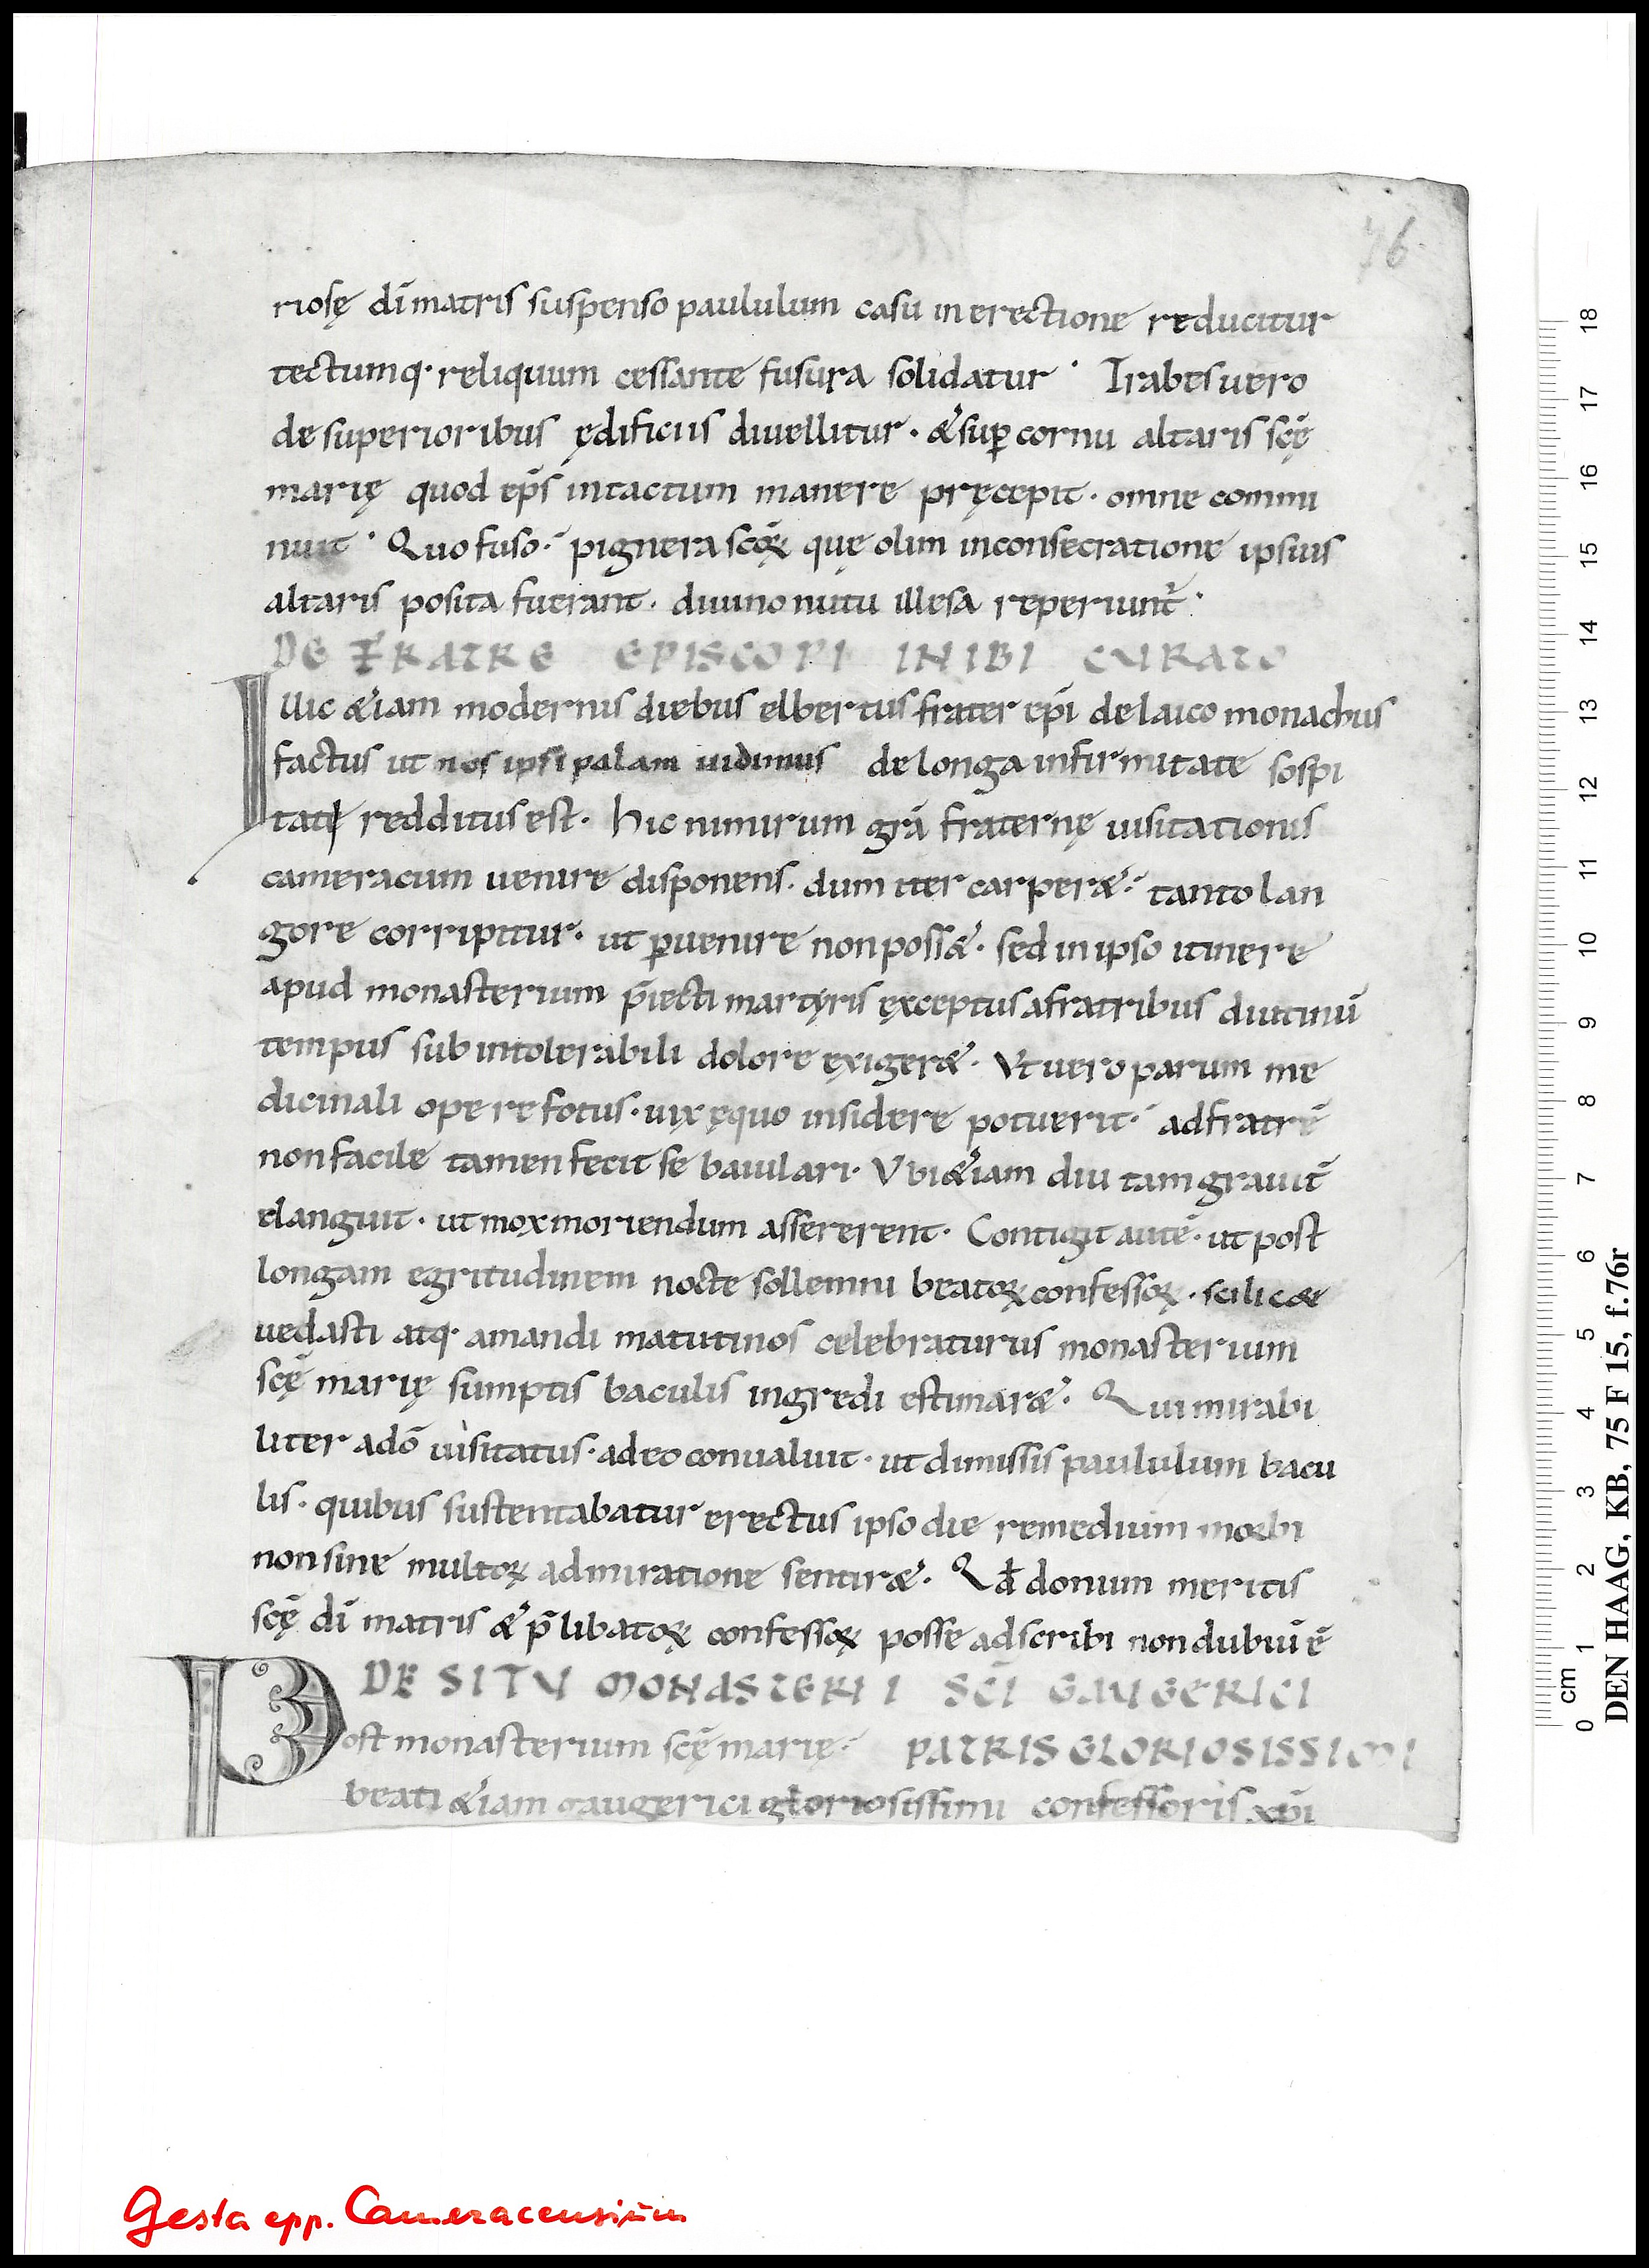 76
riosę dī matris suspenso paululum casu in erectione reducitur
tectumq· reliquum cessante fusura solidatur · Trabes uero
de superioribus ędificiis diuellitur · & sup̱ cornu altaris scę̄
marię quod ep̄s intactum manere pręcepit · omne commi
nuit · Quo fuso · pignera scōꝝ quę olim in consecratione ipsius
altaris posita fuerant · diuino nutu illesa reperiunt̄ ·
DE FRATRE EPISCOPI INIBI CURATO
Illic &iam modernis diebus elbertus frater ep̄i de laico monachus
factus ut nos ipsi palam uidimus de longa infirmitate sospi
tati redditus est · hic nimirum grā fraternę uisitationis
cameracum uenire disponens · dum iter carper& · tanto lan
gore corripitur · ut ꝑuenire non poss& · sed in ipso itinere
apud monasterium p̄iecti martyris exceptus a fratribus diutinū
tempus sub intolerabili dolore exiger& · Vt uero parum me
dicinali ope refotus · uix ęquo insidere potuerit · ad fratrē
non facile tamen fecit se baiulari · Vbi &iam diu tam grauit̄
elanguit · ut mox moriendum assererent · Contigit autē · ut post
longam egritudinem nocte sollemni beatoꝝ confessoꝝ · scilic&
uedasti atq· amandi matutinos celebraturus monasterium
scę̄ marię sumptis baculis ingredi estimar& · Qui mirabi
liter a dō uisitatus · adeo conualuit · ut dimissis paululum bacu
lis · quibus sustentabatur erectus ipso die remedium morbi
non sine multoꝝ admiratione sentir& · Qđ donum meritis
scę̄ dī matris & p̄libatoꝝ confessoꝝ posse adscribi non dubiū ē
DE SITU MONASTERII SCĪ GAUGERICI
Post monasterium scę̄ marię · PATRIS GLORIOSISSIMI
beati &iam gaugerici gloriosissimi confessoris xp̄i
18
17
16
15
14
13
12
11
10
9
8
7
6
5
4
3
2
1
0
cm
DEN HAAG, KB, 75 F 15, f.76r
Gesta epp. Cameracensium